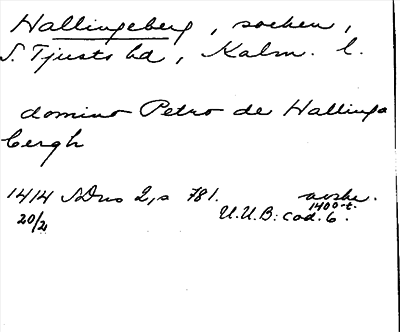 Hallingeberg, socken,
S. Tjusts hd, Kalm. l.
domino Petro de Hallinga
bergh
1414 SDns 2, s 781. avskr.
1400-t.
20/2 U.U.B: cod. 6.